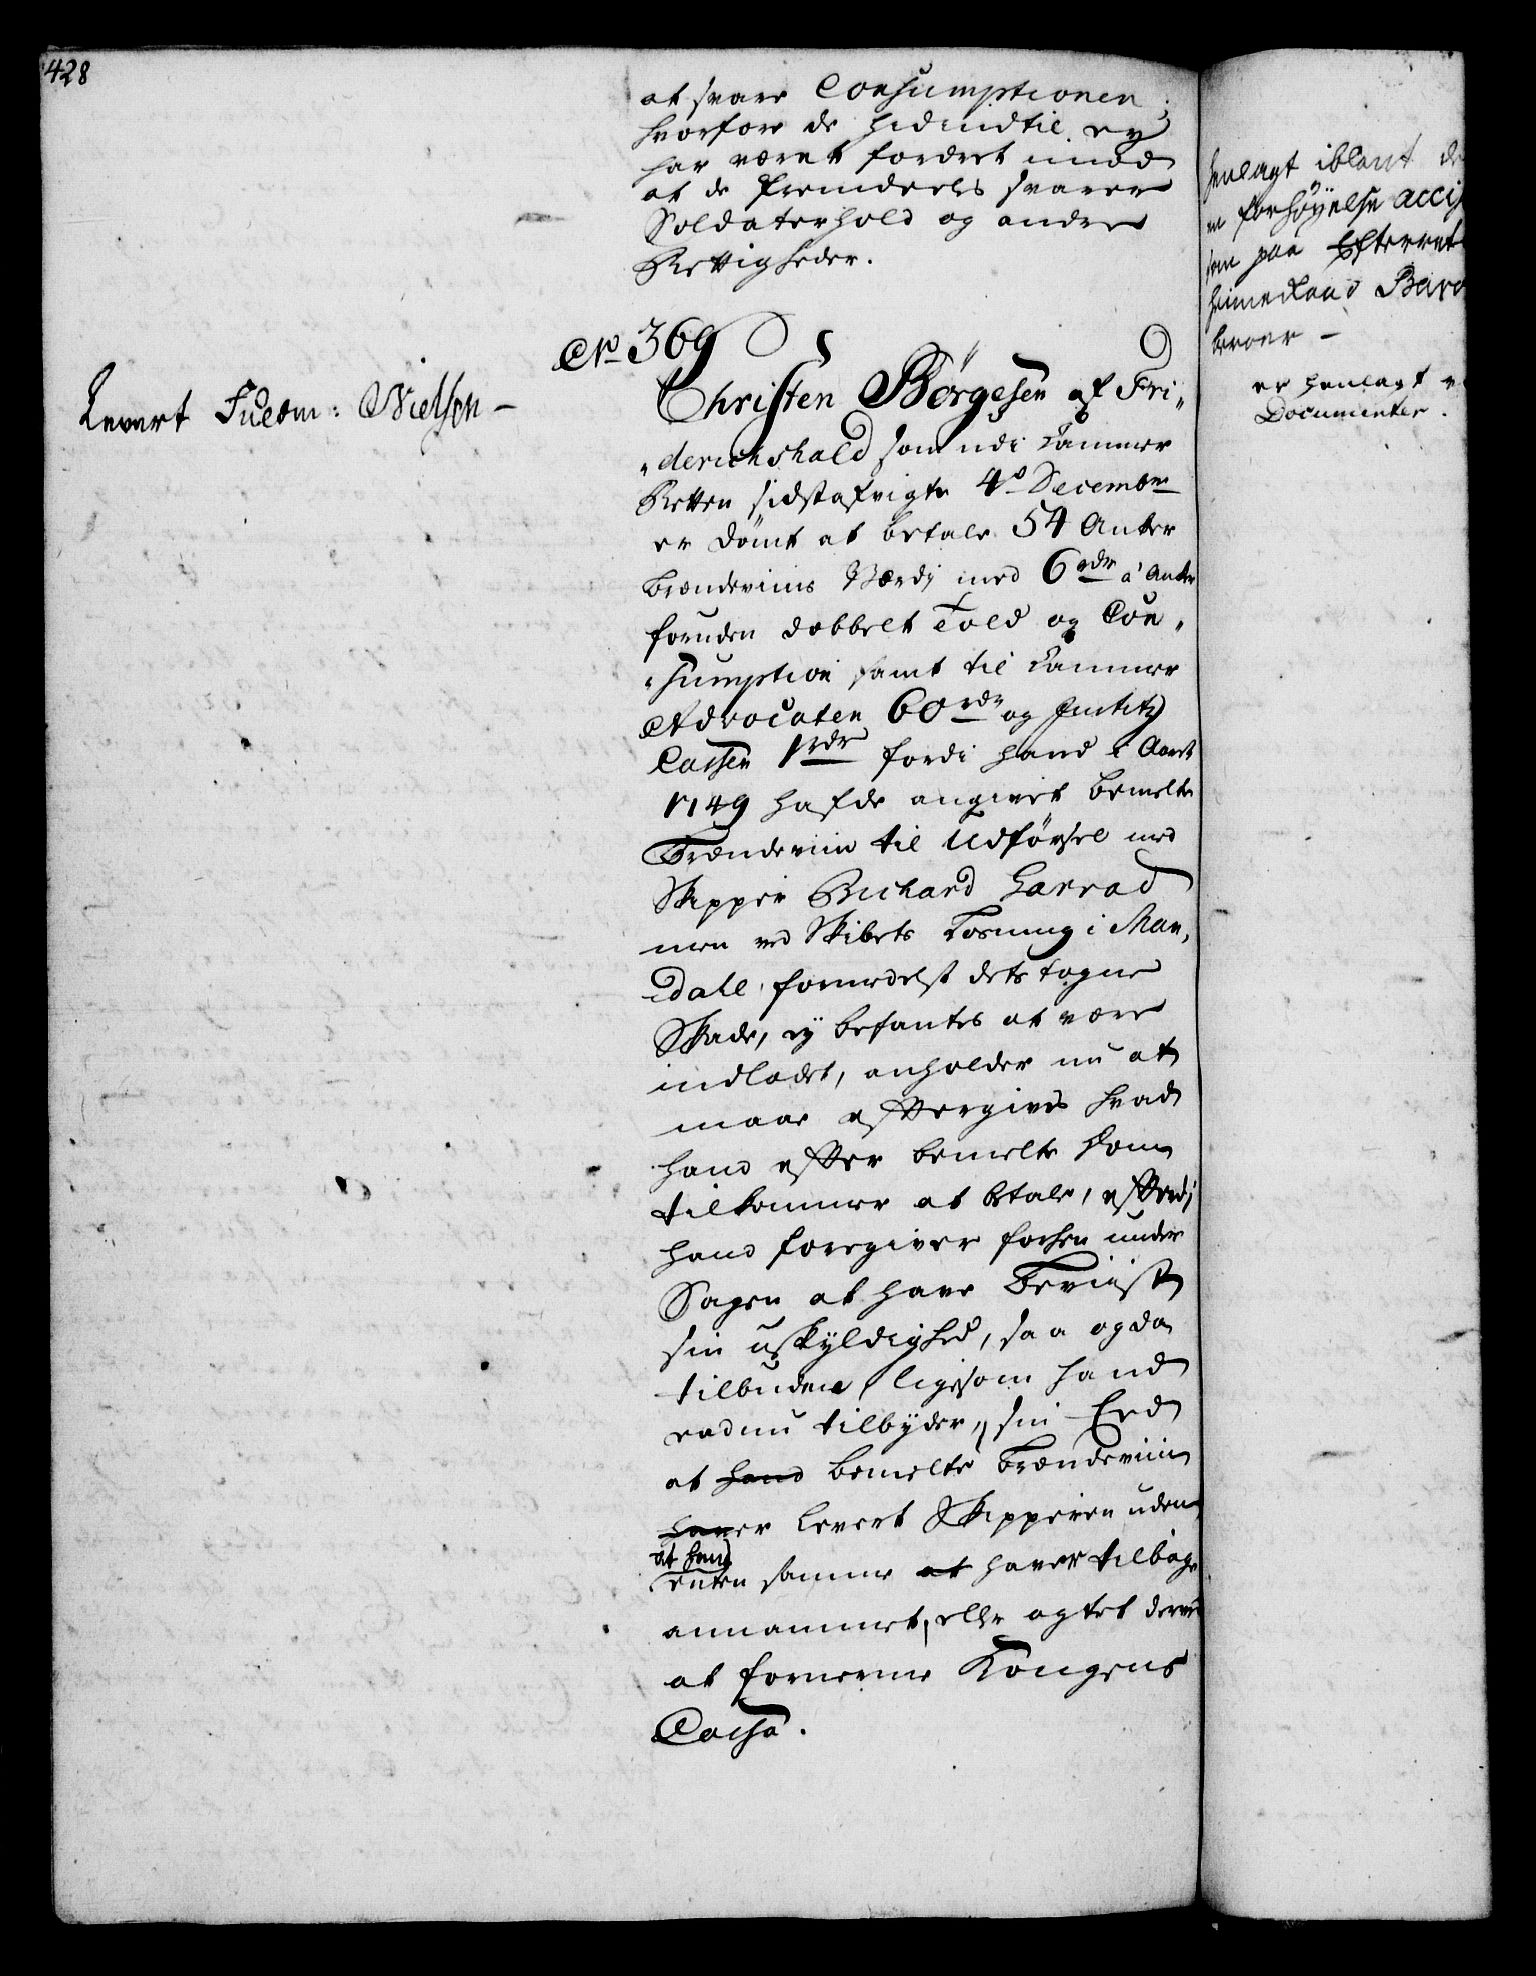 428
at svare Consumptionen,
hvorfore de hidindtil ey
har været fordret imod
at de fremdeels svarer
Soldaterhold og andre
Rettigheder.
No 369
Levert Fuldm: Nielsen -
Christen Børgesen af Fri,,
,,derichshald som udi Cammer
Retten sidstafvigte 4de Decembr
er dømt at betale 54 Anker
brændeviins Værdj med 6 rdr á Anker
foruden dobbelt Told og Con,,
,,sumption samt til Cammer
Advocaten 60 rdr og Justitz
Cassen 1 rdr fordi hand i Aaret
1749 hafde angivet bemelte
Brændeviin til Udførsel med
Skipper Richard Garrad
men ved Skibets Losning i Man,,
dahl, formedelst dets tagne
Skade, ey befantes at være
indladet, anholder nu at
maae efftergives hvad
hand effter bemelte Dom
tilkommer at betale, effterdj
hand foregiver forhen under
Sagen at have Beviist
sin uskyldighed, saa og da
tilbuden, ligesom hand
endnu tilbyder, sin Eed
at hand bemelte Brændeviin
haver levert Skipperen uden
at hand
enten samme at haver tilbage
annammet, eller agtet derved
at fornerme Kongens
Cassa.
henlagt iblant de
forhøyelse acci
paa Efterret
Baro
er henlagt
Documenter.